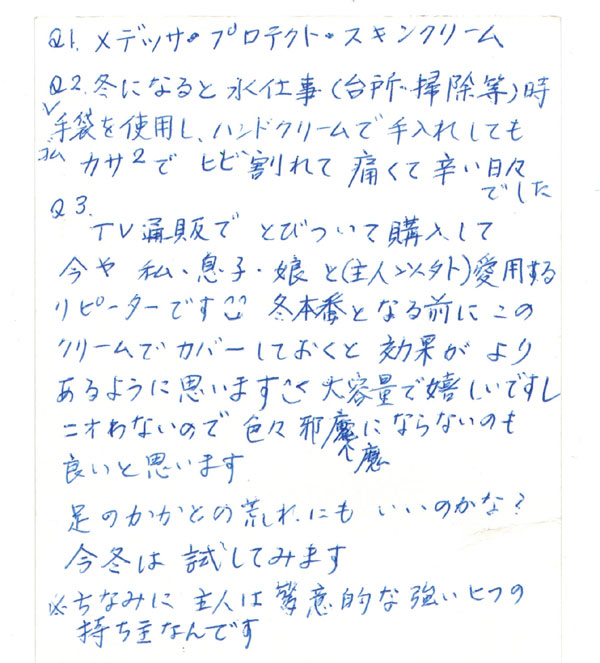 Q1. メデッサ・プロテクト・スキンクリーム
Q2. 冬になると 水仕事(台所・掃除等)時
ゴム手袋を使用し、ハンドクリームで手入れしても
カサ2で ヒビ割れて 痛くて 辛い日々
でした
Q3.
TV通販で とびついて購入して
今や 私・息子・娘 と(主人以外)愛用する
リピーターです 冬本番となる前に この
クリームで カバーしておくと 効果が より
あるように思います 大容量で嬉しいですし
ニオわないので 色々 邪魔にならないのも
魔
良いと思います
足のかかとの荒れにも いいのかな?
今冬は 試してみます
※ちなみに 主人は 驚意的な強いヒフの
持ち主なんです